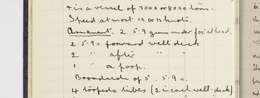 is a vessel of 7000 or 8000 tons.
Speed at most 14 or 15 knots.
Armament. 2 5.9 guns under for'c'head.
2 5.9s forward well deck
2 " after " "
1 " on poop.
Broadside of 5 5.9s.
4 torpedo tubes (2 in each well deck)